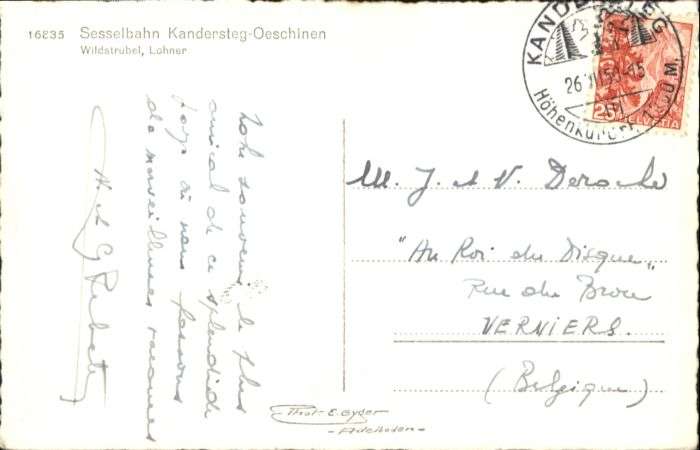 16835 Sesselbahn Kandersteg-Oeschinen
Wildstrubel, Lohner
KANDERSTEG
26.VII.51-15
Höhenkurort 1200 M.
20
HELVETIA
Notre souvenir le plus
amical de ce splendide
pays où nous passons
de merveilleuses vacances
M. et G.
M. J. et V. Deroche
"Au Roi du Disque"
Rue du Brou
VERVIERS.
(Belgique)
Phot. E. Gyger
-Adelboden-